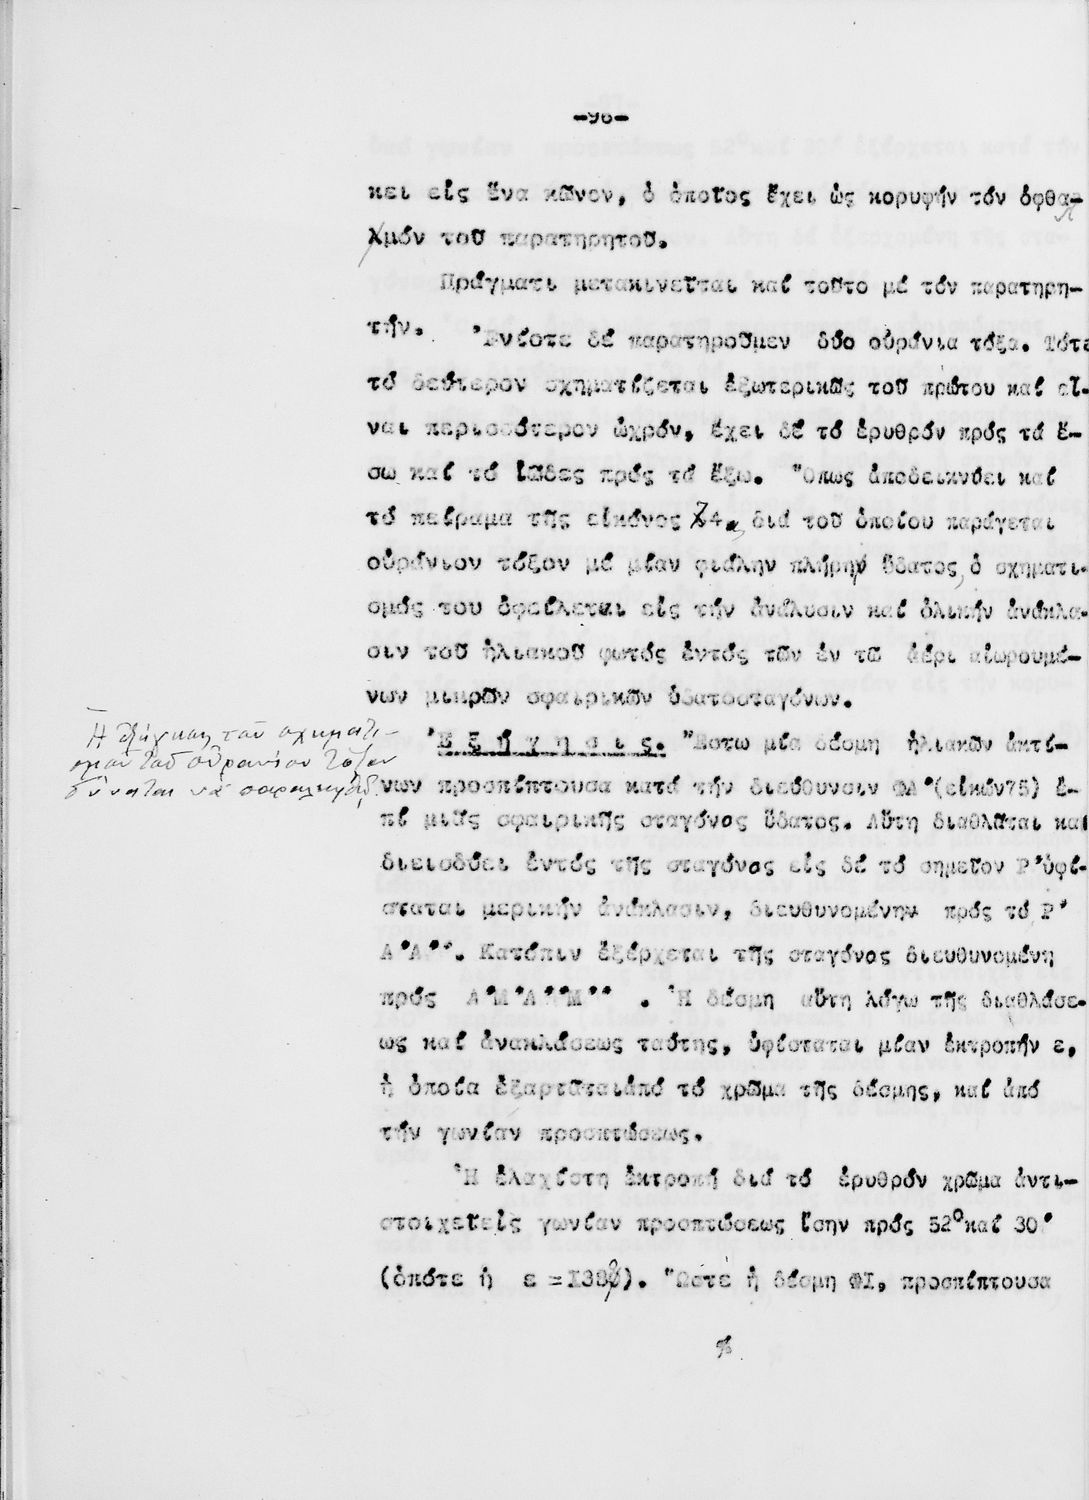 -96-
κει είς ἕνα κῶνον, ὁ ὁποῖος ἔχει ὡς κορυφήν τόν ὀφθα-
λμόν τοῦ παρατηρητοῦ.
Πράγματι μετακινεῖται καί τοῦτο μέ τόν παρατηρη-
τήν. Ἐνίοτε δέ παρατηροῦμεν δύο οὐράνια τόξα. Τότε
τό δεύτερον σχηματίζεται ἐξωτερικῶς τοῦ πρώτου καί εἶ-
ναι περισσότερον ὠχρόν, ἔχει δέ τό ἐρυθρόν πρός τά ἔ-
σω καί τό ἰῶδες πρός τά ἔξω. Ὅπως ἀποδεικνύει καί
τό πείραμα τῆς εἰκόνος 74, διά τοῦ ὁποίου παράγεται
οὐράνιον τόξον μέ μίαν φιάλην πλήρη ὕδατος, ὁ σχηματι-
σμός του ὀφείλεται είς τήν ἀνάλυσιν καί ὁλικήν ἀνάκλα-
σιν τοῦ ἡλιακοῦ φωτός ἐντός τῶν ἐν τῶ ἀέρι αἰωρουμέ-
νων μικρῶν σφαιρικῶν ὑδατοσταγόνων.
Ἡ ἐξήγησις τοῦ σχηματι-
σμοῦ τοῦ οὐρανίου τόξου
δύναται νά παραλειφθῇ
Ἐξήγησις. Ἔστω μία δέσμη ἡλιακῶν ἀκτί-
νων προσπίπτουσα κατά τήν διεύθυνσιν ΦΑ (εἰκών75) ἐ-
πί μιᾶς σφαιρικῆς σταγόνος ὕδατος. Αὕτη διαθλᾶται καί
διεισδύει ἐντός τῆς σταγόνος είς δέ τό σημεῖον Ρ'ὑφί-
σταται μερικήν ἀνάκλασιν, διευθυνομένην πρός τό Ρ'
Α'Α''. Κατόπιν ἐξέρχεται τῆς σταγόνος διευθυνομένη
πρός Α'Μ'Α''Μ'' . Ἡ δέσμη αὕτη λόγω τῆς διαθλάσε-
ως καί ἀνακλάσεως ταύτης, ὑφίσταται μίαν ἐκτροπήν ε,
ἡ ὁποία ἐξαρτᾶταιἀπό τό χρῶμα τῆς δέσμης, καί ἀπό
τήν γωνίαν προσπτώσεως.
Ἡ ἐλαχίστη ἐκτροπή διά τό ἐρυθρόν χρῶμα ἀντι-
στοιχεῖείς γωνίαν προσπτώσεως ἴσην πρός 52° καί 30'
(ὁπότε ἡ ε =138°). Ὥστε ἡ δέσμη ΦΙ, προσπίπτουσα
%